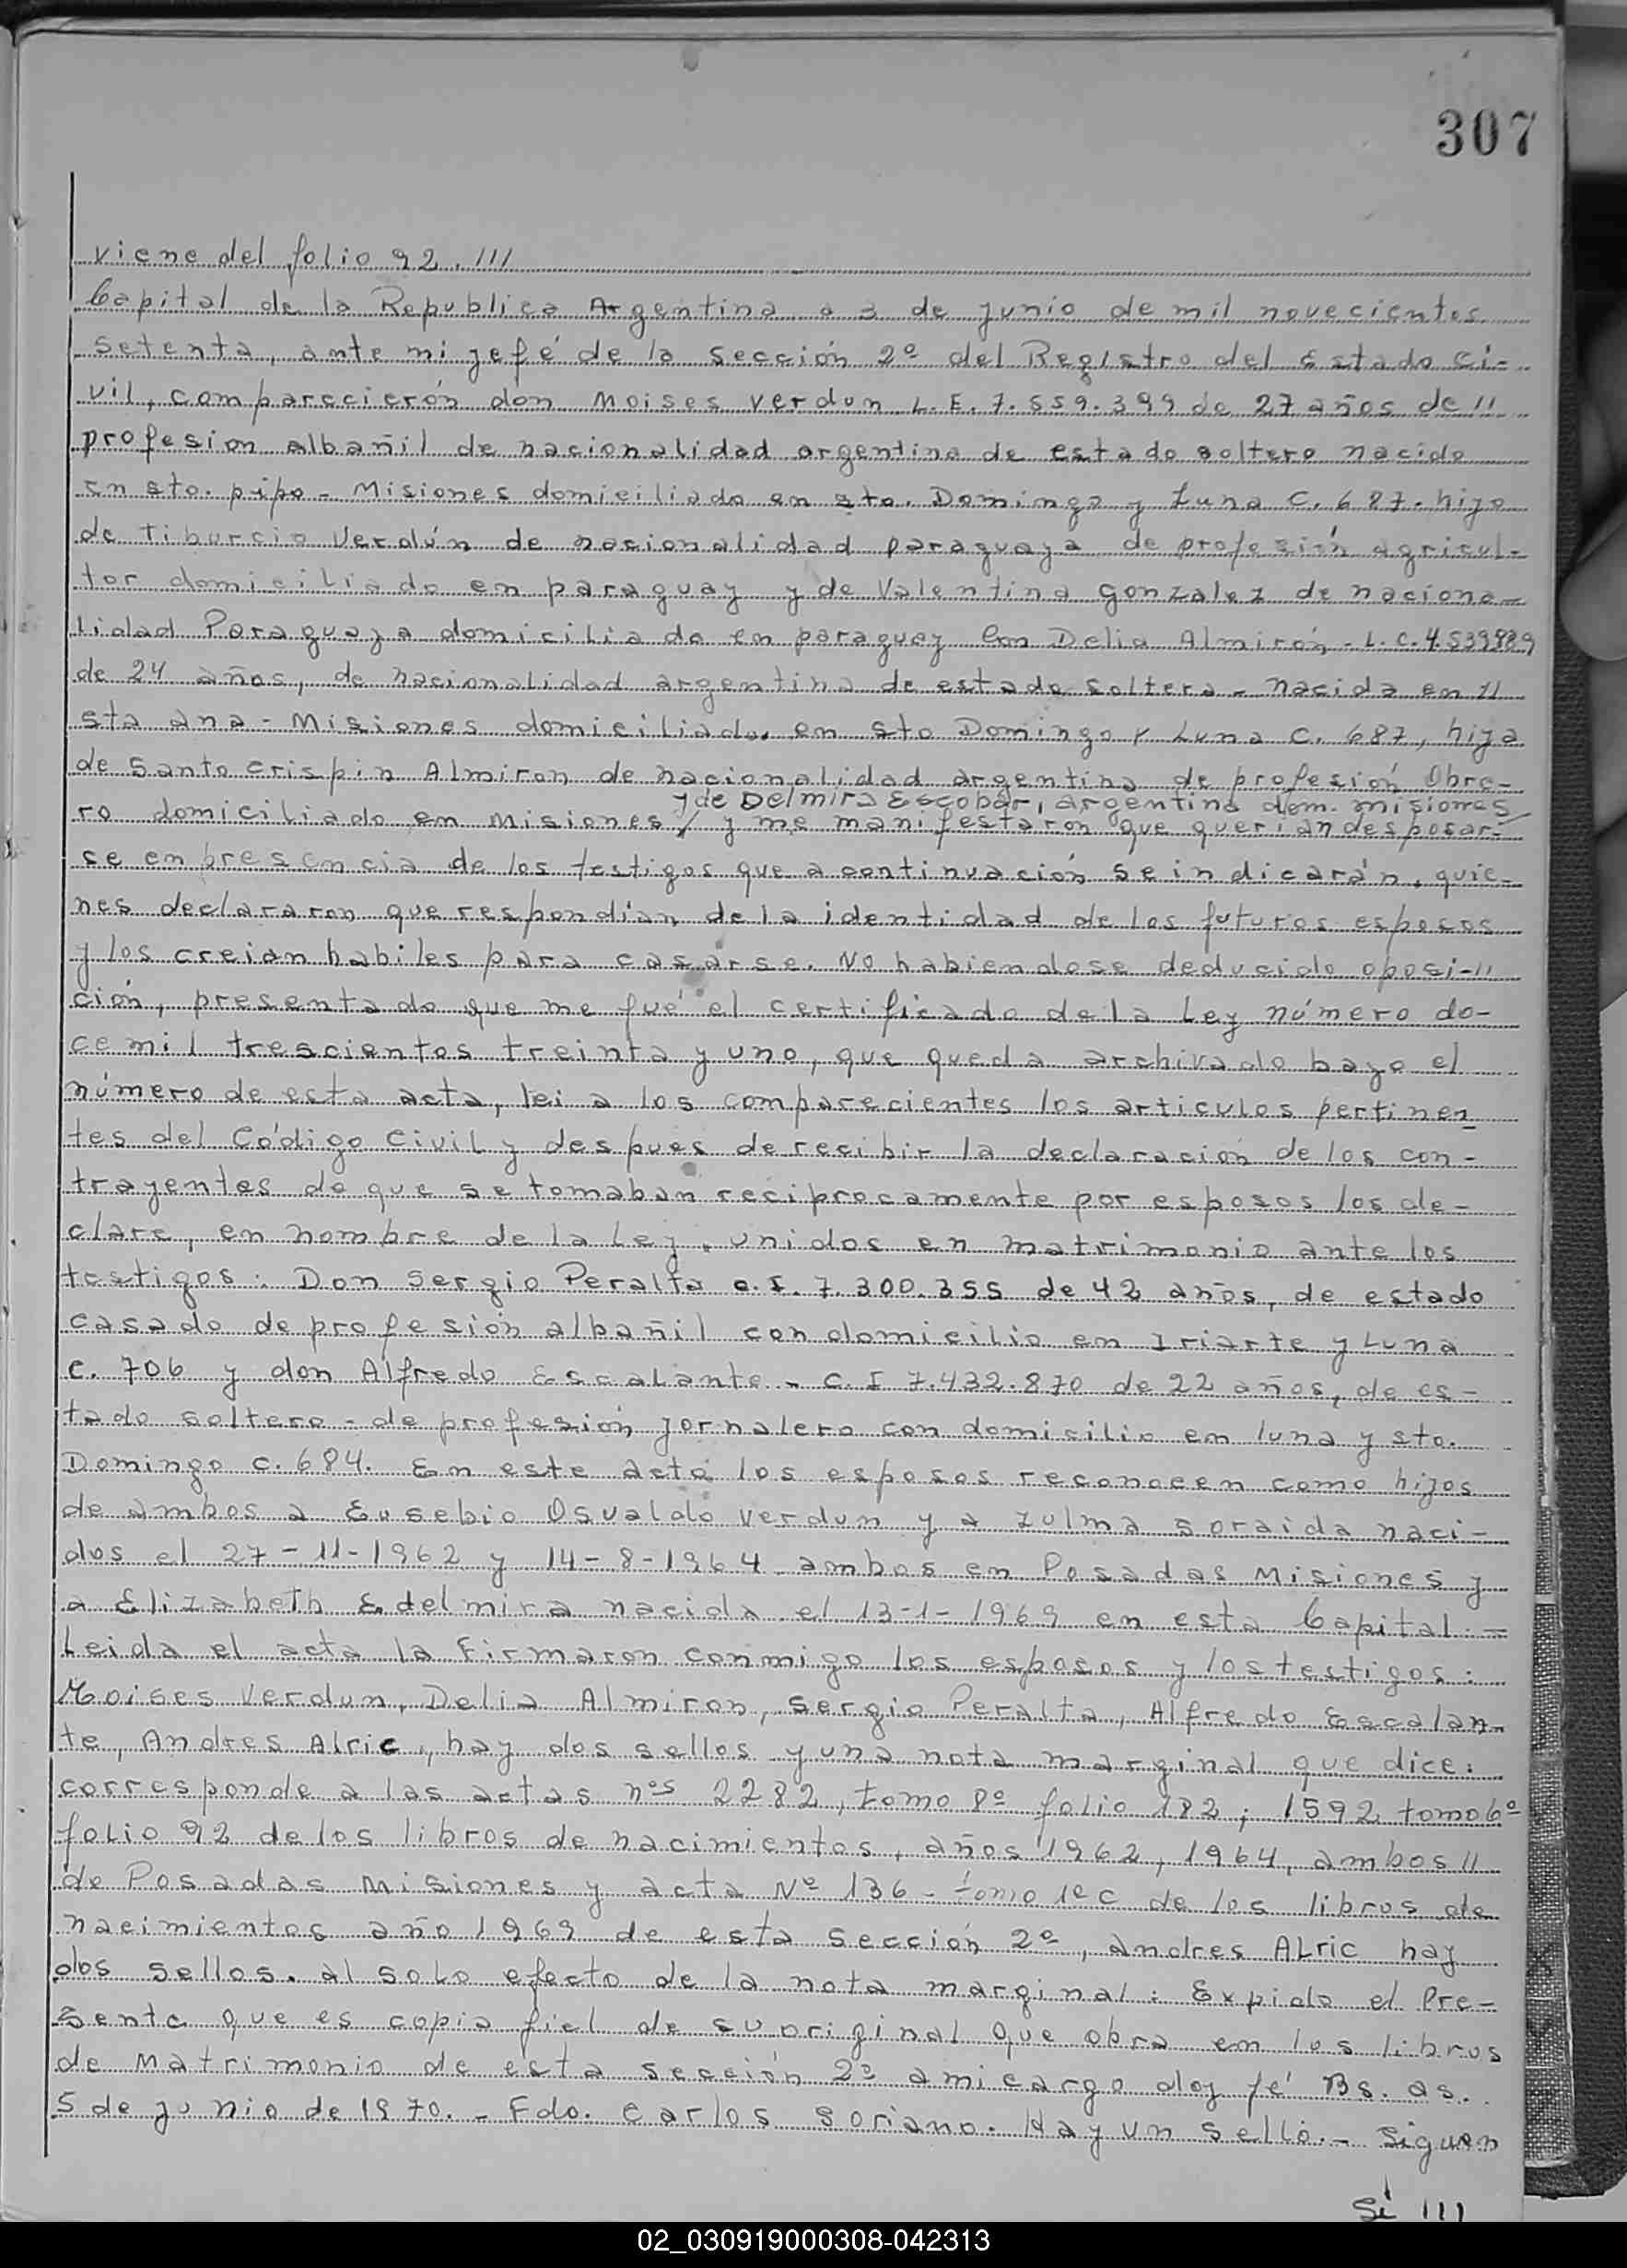 307
viene del folio 92. ///
Capital de la Republica Argentina a 3 de junio de mil novecientos
setenta, ante mi jefé de la sección 2º del Registro del Estado Ci-
vil, comparecierón don Moises Verdun L.E. 7.559.399 de 27 años de //
profesion albañil de nacionalidad argentina de estado soltero nacido
en sto. pipo - Misiones domiciliado en sto. Domingo y Luna C. 687. hijo
de Tiburcio Verdún de nacionalidad paraguaya de profesión agricul-
tor domiciliado en paraguay y de Valentina Gonzalez de naciona-
lidad Paraguaya domiciliada en paraguay Con Delia Almirón - L.C. 4.539889
de 24 años, de nacionalidad argentina de estado soltera - nacida en //
sta ana - Misiones domiciliada en sto Domingo y Luna C. 687, hija
de Santo Crispin Almiron de nacionalidad argentina de profesión Obre-
y de Delmira Escobar, argentina dom. misiones
ro domiciliado en Misiones / y me manifestarón que querian desposar-
se en presencia de los testigos que a continuación se indicarán, quie-
nes declararon que respondían de la identidad de los futuros esposos
y los creian habiles para casarse. No habiendose deducido oposi-//
ción, presentado que me fué el certificado de la Ley número do-
ce mil trescientos treinta y uno, que queda archivado bajo el
número de esta acta, lei a los comparecientes los articulos pertinen-
tes del Código Civil y despues de recibir la declaración de los con-
trayentes de que se tomaban reciprocamente por esposos los de-
claré, en nombre de la Ley, unidos en matrimonio ante los
testigos: Don Sergio Peralta C.I. 7.300.355 de 42 años, de estado
casado de profesión albañil con domicilio en Iriarte y Luna
C. 706 y don Alfredo Escalante - C.I 7.432.870 de 22 años, de es-
tado soltero - de profesión jornalero con domicilio en luna y sto.
Domingo c. 684. En este acto los esposos reconocen como hijos
de ambos a Eusebio Osvaldo Verdun y a Zulma Soraida naci-
dos el 27-11-1962 y 14-8-1964 ambos en Posadas Misiones y
a Elizabeth Edelmira nacida el 13-1-1969 en esta Capital. =
Leida el acta la firmaron conmigo los esposos y los testigos:
Moises Verdun, Delia Almiron, Sergio Peralta, Alfredo Escalan-
te, Andres Alric, hay dos sellos y una nota marginal que dice:
corresponde a las actas nºs 2282, tomo 8º folio 182; 1592 tomo 6º
folio 92 de los libros de nacimientos, años 1962, 1964, ambos //
de Posadas Misiones y acta Nº 136 - tomo 1º C de los libros de
nacimientos año 1969 de esta Sección 2º, Andres Alric hay
dos sellos. al solo efecto de la nota marginal: Expido el Pre-
sente que es copia fiel de su original que obra en los libros
de Matrimonio de esta sección 2º a mi cargo doy fé Bs. as.
5 de junio de 1970. - Fdo. Carlos Soriano. Hay un sello. - Siguen
Si ///
02_030919000308-042313